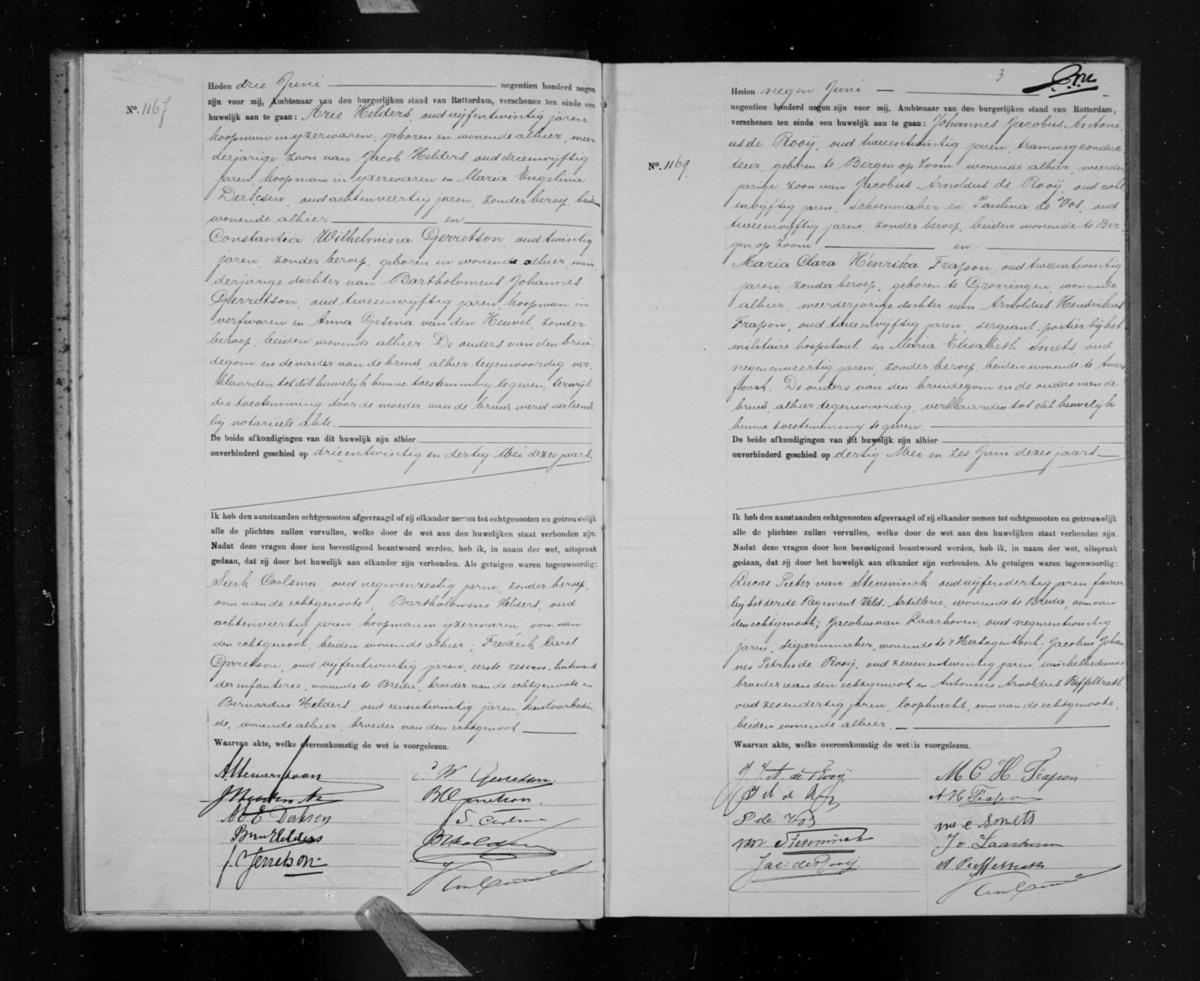 Heden drie Juni negentien honderd negen
Nº. 1167
zijn voor mij, Ambtenaar van den burgerlijken stand van Rotterdam, verschenen ten einde een
huwelijk aan te gaan: Arie Helders, oud vijfentwintig jaren,
koopman in yzerwaren, geboren en wonende alhier, meer
derjarige zoon van Jacob Helders, oud drieenvijftig
jaren, koopman in yzerwaren en Maria Engelina
Derksen, oud achtenveertig jaren, zonder beroep, beiden
wonende alhier en
Constantia Wilhelmina Gerretson, oud twintig
jaren, zonder beroep, geboren en wonende alhier, min
derjarige dochter van Bartholomeus Johannes
Gerretson, oud tweeenvijftig jaren, koopman in
verfwaren en Anna Gesina van den Heuvel, zonder
beroep, beiden wonende alhier. De ouders van den brui
degom en de vader van de bruid, alhier tegenwoordig ver
klaarden tot dit huwelijk hunne toestemming te geven, terwijl
die toestemming door de moeder van de bruid werd verleend
bij notarieele akte.
De beide afkondigingen van dit huwelijk zijn alhier
onverhinderd geschied op drieentwintig en dertig Mei dezes jaars
Ik heb den aanstaanden echtgenooten afgevraagd of zij elkander nemen tot echtgenooten en getrouwelijk
alle de plichten zullen vervullen, welke door de wet aan den huwelijken staat verbonden zijn.
Nadat deze vragen door hen bevestigend beantwoord werden, heb ik, in naam der wet, uitspraak
gedaan, dat zij door het huwelijk aan elkander zijn verbonden. Als getuigen waren tegenwoordig:
Coolsma, oud negenenzestig jaren, zonder beroep,
oom van de echtgenoote, Bartholomeus Helders, oud
achtenveertig jaren, koopman in yzerwaren, oom van
den echtgenoot, beiden wonende alhier; Frederik Carel
Gerretson, oud vijfentwintig jaren, eerste reserve luitenant
der infanterie, wonende te Breda, broeder van de echtgenoote en
Bernardus Helders, oud eenentwintig jaren, kantoorbedien
de, wonende alhier, broeder van den echtgenoot
Waarvan akte, welke overeenkomstig de wet is voorgelezen.
C W Gerretson
M E Derksen
Bern Helders
Gerretson
3
Heden negen Juni
negentien honderd negen zijn voor mij, Ambtenaar van den burgerlijken stand van Rotterdam,
verschenen ten einde een huwelijk aan te gaan: Johannes Jacobus Antoni
us de Rooij, oud tweeentwintig jaren, tramwegconduc
Nº. 1169
teur, geboren te Bergen op Zoom, wonende alhier, meerder
jarige zoon van Jacobus Arnoldus de Rooij, oud acht
envijftig jaren, schoenmaker en Paulina de Vos, oud
tweeenvijftig jaren, zonder beroep, beiden wonende te Ber
gen op Zoom en
Maria Clara Henrika Frapon, oud tweeentwintig
jaren, zonder beroep, geboren te Groningen, wonende
alhier, meerderjarige dochter van Arnoldus Hendrikus
Frapon, oud tweeenvijftig jaren, sergeant-portier bij het
militaire hospitaal en Maria Elisabeth Smets, oud
negenenveertig jaren, zonder beroep, beiden wonende te Amers
foort. De ouders van den bruidegom en de ouders van de
bruid, alhier tegenwoordig, verklaarden tot dit huwelijk
hunne toestemming te geven.
De beide afkondigingen van dit huwelijk zijn alhier
onverhinderd geschied op dertig Mei en zes Juni dezes jaars
Ik heb den aanstaanden echtgenooten afgevraagd of zij elkander nemen tot echtgenooten en getrouwelijk
alle de plichten zullen vervullen, welke door de wet aan den huwelijken staat verbonden zijn.
Nadat deze vragen door hen bevestigend beantwoord werden, heb ik, in naam der wet, uitspraak
gedaan, dat zij door het huwelijk aan elkander zijn verbonden. Als getuigen waren tegenwoordig:
Lucas Pieter van Steveninck, oud vijfendertig jaren, fourier
bij het derde Regiment Veld-Artillerie, wonende te Breda, oom van
den echtgenoot; Jacobus van Laarhoven, oud negenentwintig
jaren, sigarenmaker, wonende te 's Hertogenbosch; Jacobus Johan
nes Petrus de Rooij, oud zevenentwintig jaren, winkelbediende,
broeder van den echtgenoot en Antonius Arnoldus Peffeltrath,
oud zesendertig jaren, loopknecht, oom van de echtgenoote,
beiden wonende alhier.
Waarvan akte, welke overeenkomstig de wet is voorgelezen.
J. J. A. de Rooij M. C. H. Frapon
J A de Rooij A H Frapon
P de Vos M E Smets
van Steveninck J v Laarhoven
Jac. de Rooij A Peffeltrath